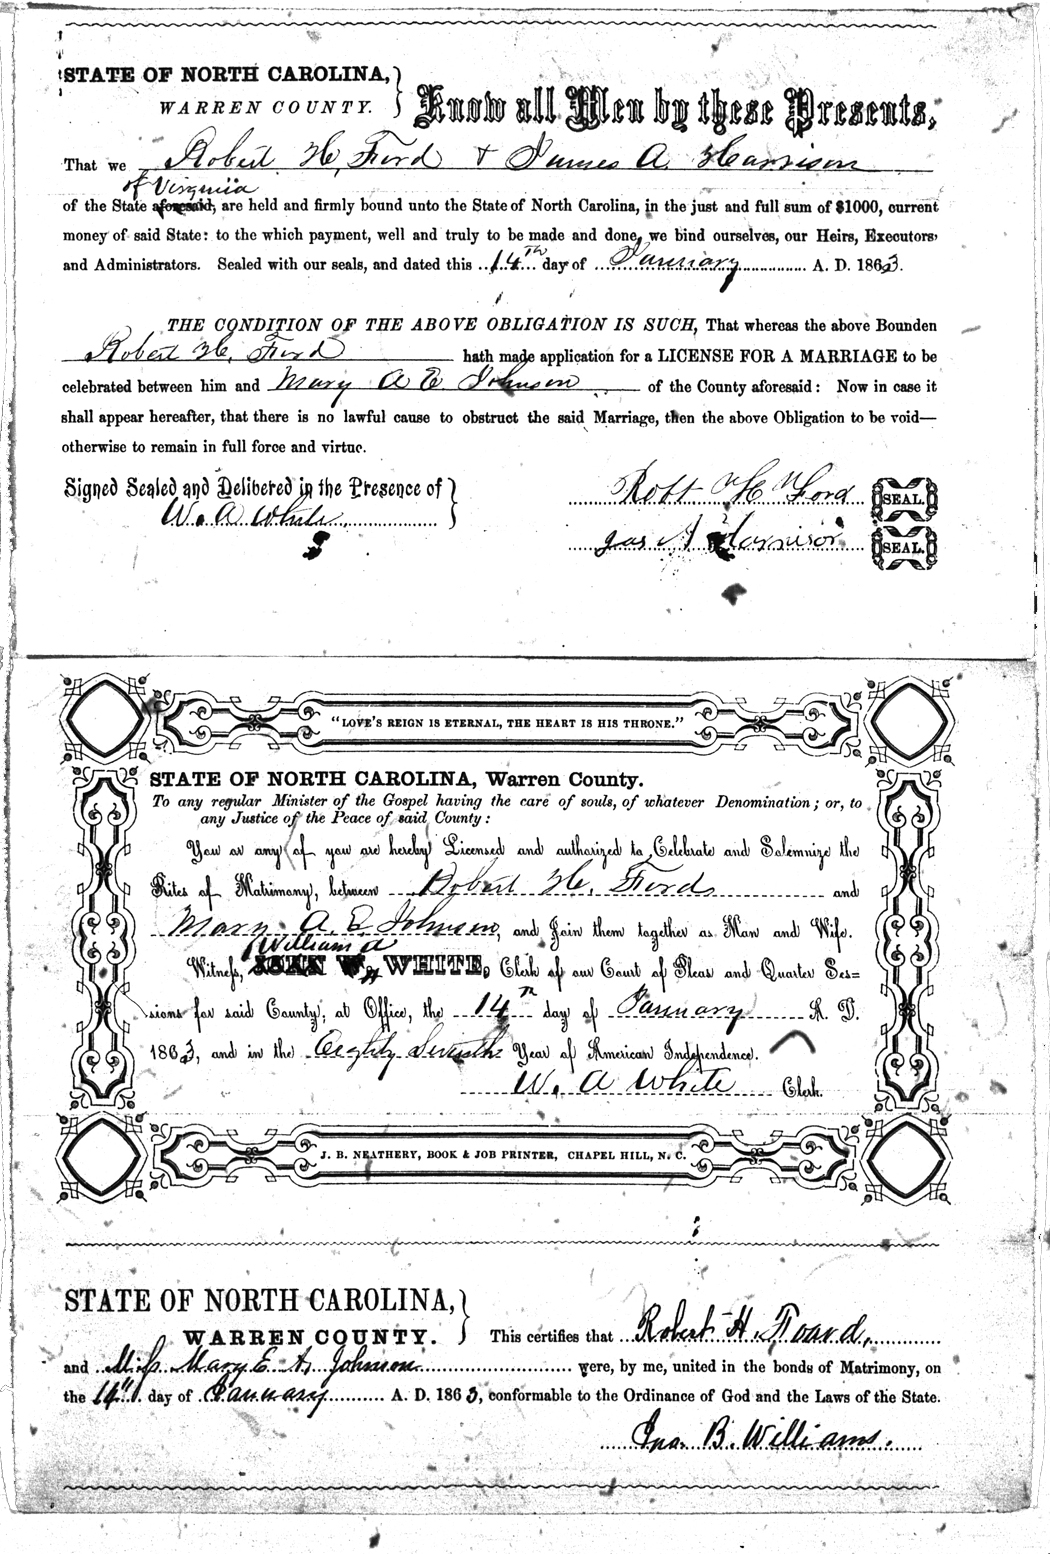 STATE OF NORTH CAROLINA,
WARREN COUNTY.
Know all Men by these Presents,
That we Robert H, Ford & James A Harrison
of Virginia
of the State aforesaid, are held and firmly bound unto the State of North Carolina, in the just and full sum of $1000, current
money of said State: to the which payment, well and truly to be made and done, we bind ourselves, our Heirs, Executors,
and Administrators. Sealed with our seals, and dated this 14th day of January A. D. 1863.
THE CONDITION OF THE ABOVE OBLIGATION IS SUCH, That whereas the above Bounden
Robert H, Ford hath made application for a LICENSE FOR A MARRIAGE to be
celebrated between him and Mary A E Johnson of the County aforesaid: Now in case it
shall appear hereafter, that there is no lawful cause to obstruct the said Marriage, then the above Obligation to be void—
otherwise to remain in full force and virtue.
Signed Sealed and Delibered in the Presence of
W. A White
Robt H Ford SEAL.
Jas A Harrison SEAL.
"LOVE'S REIGN IS ETERNAL, THE HEART IS HIS THRONE."
STATE OF NORTH CAROLINA, Warren County.
To any regular Minister of the Gospel having the care of souls, of whatever Denomination; or, to
any Justice of the Peace of said County:
You or any of you are hereby Licensed and authorized to Celebrate and Solemnize the
Rites of Matrimony, between Robert H, Ford and
Mary A. E Johnson, and Join them together as Man and Wife.
William A
Witness, JOHN W. WHITE, Clerk of our Court of Pleas and Quarter Ses=
sions for said County, at Office, the 14th day of January A. D.
1863, and in the Eighty Seventh Year of American Independence.
W. A White Clerk.
J. B. NEATHERY, BOOK & JOB PRINTER, CHAPEL HILL, N. C.
STATE OF NORTH CAROLINA,
WARREN COUNTY.
This certifies that Robert H. Foard,
and Miss Mary E A, Johnson were, by me, united in the bonds of Matrimony, on
the 14th day of January A. D. 1863, conformable to the Ordinance of God and the Laws of the State.
Jno. B. Williams.